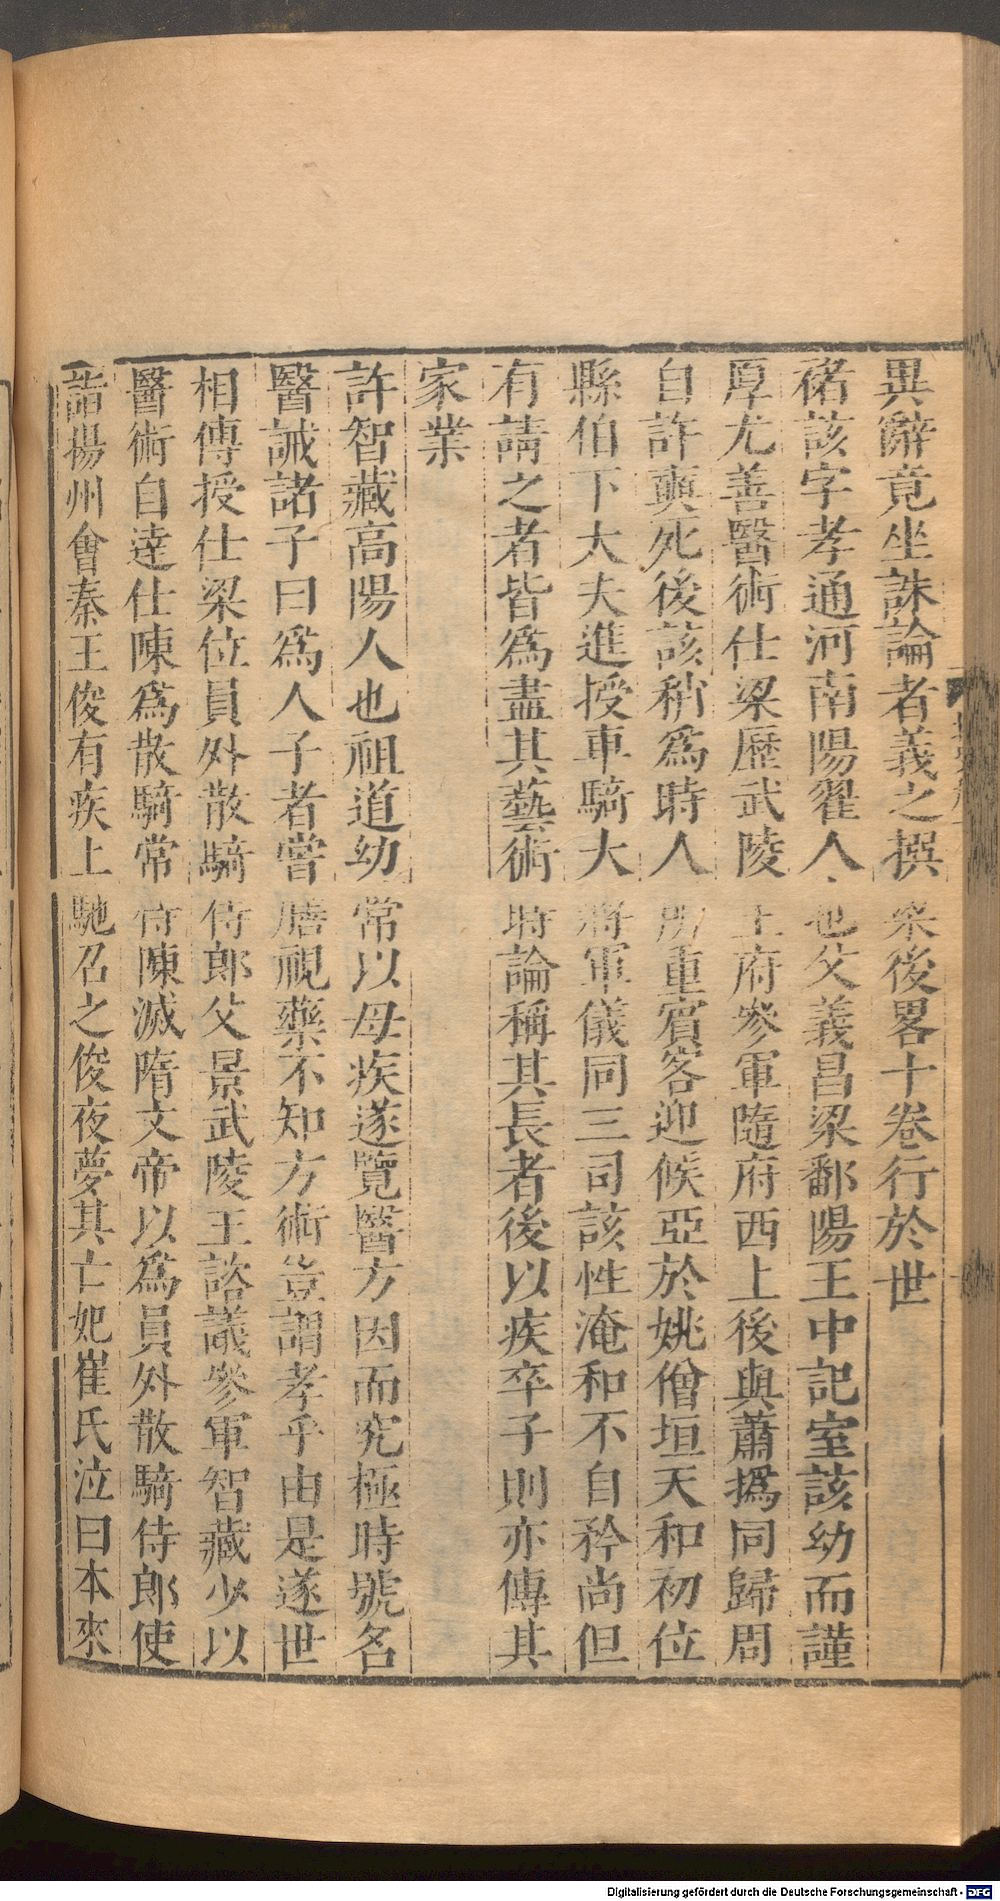 異辭竟坐誅論者義之撰梁後畧十卷行於世
褚該字孝通河南陽翟人也父義昌梁鄱陽王中記室該幼而謹
厚尤善醫術仕梁歷武陵王府參軍隨府西上後與蕭撝同歸周
自許奭死後該稍為時人所重賓客迎候亞於姚僧垣天和初位
縣伯下大夫進授車騎大將軍儀同三司該性淹和不自矜尚但
有請之者皆為盡其藝術時論稱其長者後以疾卒子則亦傳其
家業
許智藏高陽人也祖道幼常以母疾遂覽醫方因而究極時號名
醫誡諸子曰為人子者嘗膳視藥不知方術豈謂孝乎由是遂世
相傳授仕梁位員外散騎侍郎父景武陵王諮議參軍智藏少以
醫術自達仕陳為散騎常侍陳滅隋文帝以為員外散騎侍郎使
詣揚州會秦王俊有疾上馳召之俊夜夢其亡妃崔氏泣曰本來
Digitalisierung gefördert durch die Deutsche Forschungsgemeinschaft - DFG